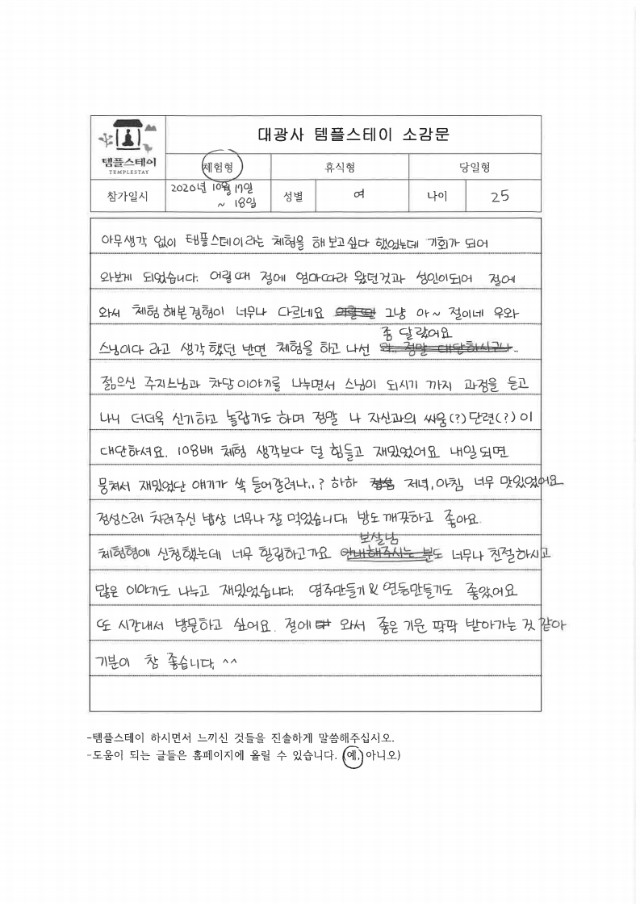 템플스테이
TEMPLESTAY
대광사 템플스테이 소감문
체험형 휴식형 당일형
참가일시 2020년 10월 17일 ~ 18일 성별 여 나이 25
아무생각 없이 템플스테이라는 체험을 해보고싶다 했었는데 기회가 되어
와보게 되었습니다. 어릴때 절에 엄마따라 왔던것과 성인이되어 절에
와서 체험해본경험이 너무나 다르네요 그냥 아~ 절이네 우와
좀 달랐어요
스님이다 라고 생각했던 반면 체험을 하고 나선 와.. 정말 대단하시구나..
젊으신 주지스님과 차담이야기를 나누면서 스님이 되시기 까지 과정을 듣고
나니 더더욱 신기하고 놀랍기도 하며 정말 나 자신과의 싸움(?) 단련(?)이
대단하셔요. 108배 체험 생각보다 덜 힘들고 재밌었어요 내일되면
뭉쳐서 재밌었단 얘기가 쏙 들어갈려나..? 하하 저녁, 아침 너무 맛있었어요
정성스레 차려주신 밥상 너무나 잘 먹었습니다. 방도 깨끗하고 좋아요.
보살님
체험형에 신청했는데 너무 힐링하고가요 안내해주시는 분도 너무나 친절하시고
많은 이야기도 나누고 재밌었습니다. 염주만들기 & 연등만들기도 좋았어요
또 시간내서 방문하고 싶어요. 절에 와서 좋은 기운 팍팍 받아가는 것 같아
기분이 참 좋습니다. ^^
-템플스테이 하시면서 느끼신 것들을 진솔하게 말씀해주십시오.
-도움이 되는 글들은 홈페이지에 올릴 수 있습니다. (예, 아니오)